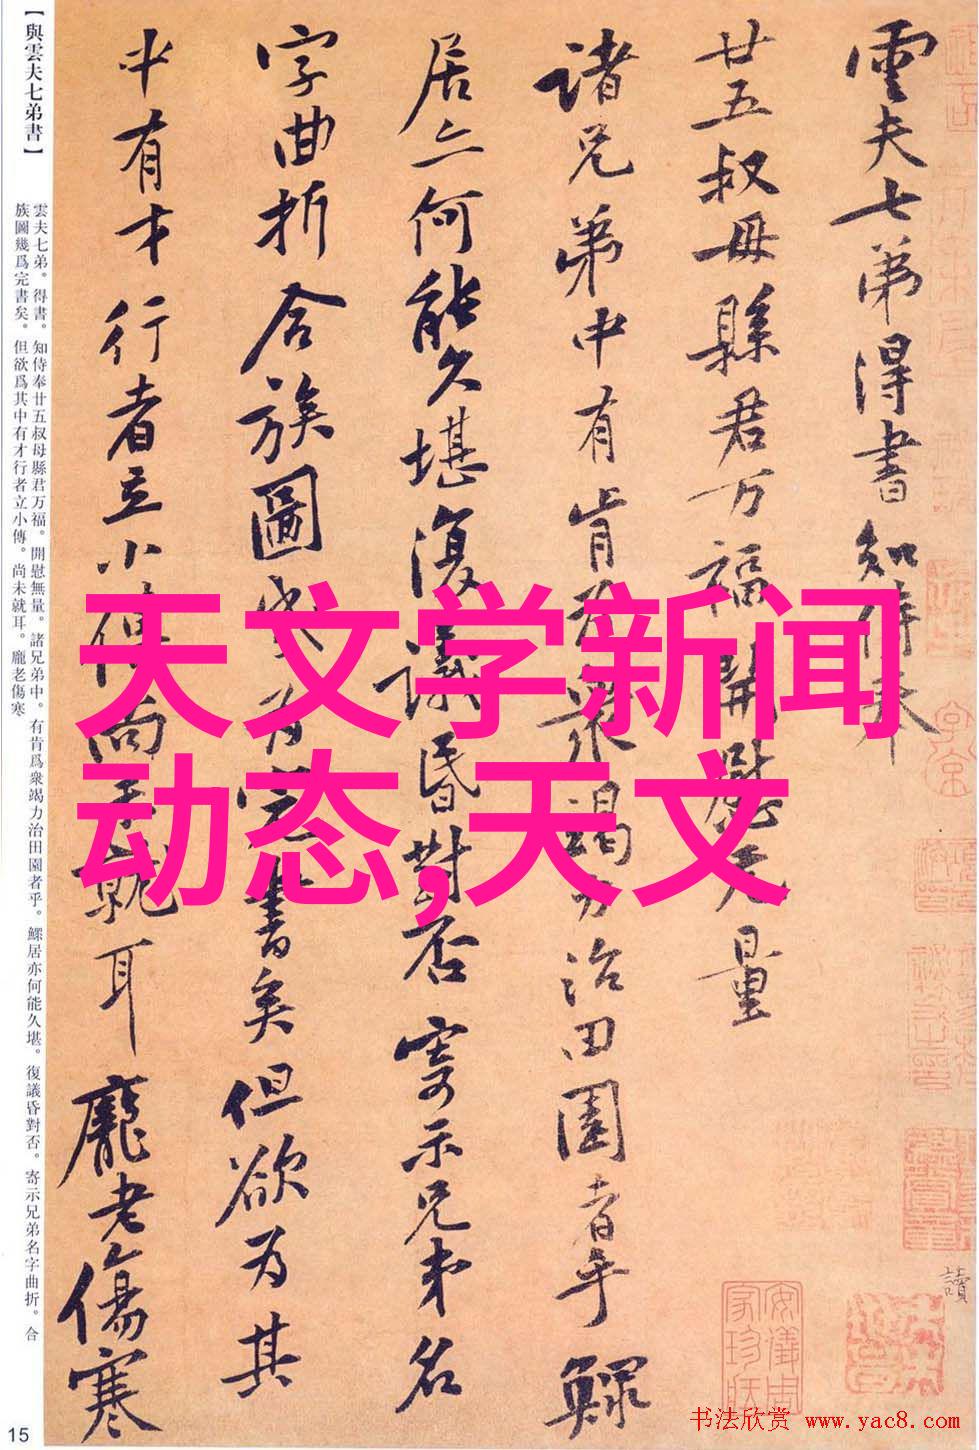 雲夫七弟得書知侍奉
廿五叔母縣君万福開慰无量
諸兄弟中有肯为眾竭力治田園者乎鰥
居亦何能久堪復議昏對否寄示兄弟名
字曲折合族圖幾为完書矣但欲为其
中有才行者立小傳尚未就耳龐老傷寒
讀
天文学新闻
动态,天文
【與雲夫七弟書】
雲夫七弟。得書。知侍奉廿五叔母縣君万福。開慰無量。諸兄弟中。有肯爲衆竭力治田園者乎。鰥居亦何能久堪。復議昏對否。寄示兄弟名字曲折。合
族圖幾爲完書矣。但欲爲其中有才行者立小傳。尚未就耳。龐老傷寒
15
安儀周
家珍藏
书法欣赏 www.yac8.com